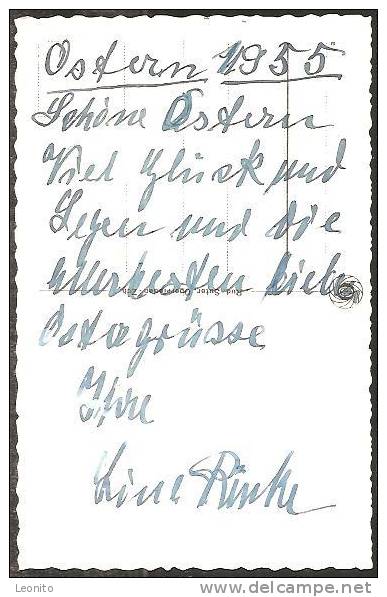 Ostern 1955
Schöne Ostern
Viel Glück und
Segen und die
allerbesten
Ostergrüsse
Ihre
Line Rinke
Leonito
www.delcampe.net